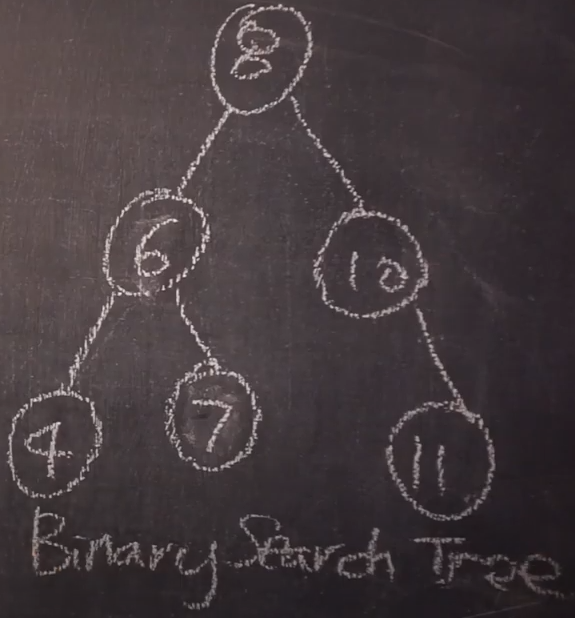 8
6 10
4 7 11
Binary Search Tree